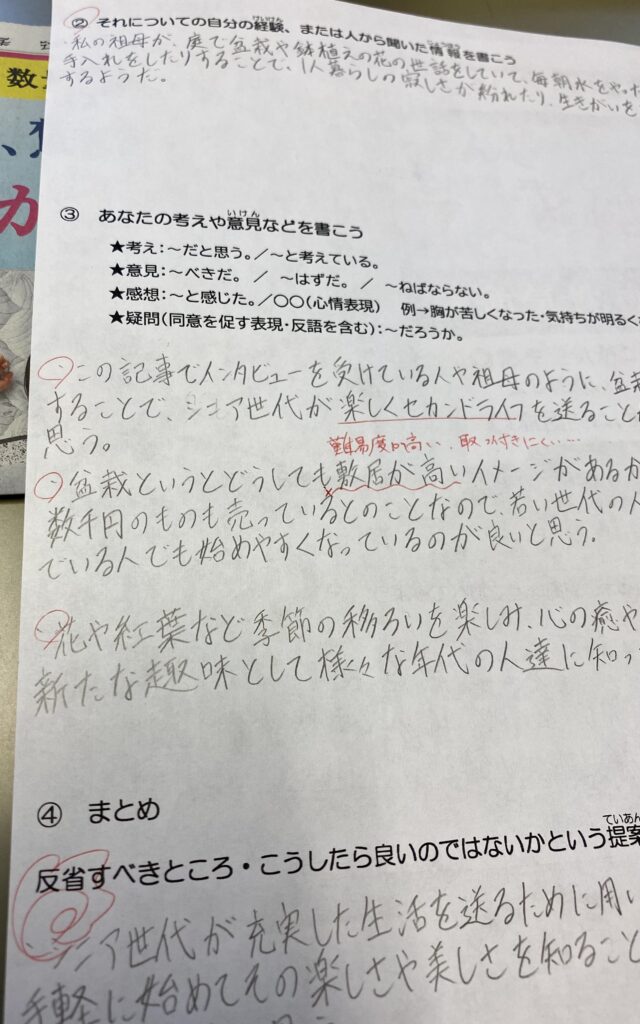 数
か
② それについての自分の経験、または人から聞いた情報を書こう
けいけん
じょうほう
・私の祖母が、庭で盆栽や鉢植えの花の世話をしていて、毎朝水をやった
手入れをしたりすることで、1人暮らしの寂しさが紛れたり、生きがいを
するようだ。
③ あなたの考えや意見などを書こう
いけん
★考え:～だと思う。/～と考えている。
★意見:～べきだ。 / ～はずだ。 / ～ねばならない。
★感想:～と感じた。/○○(心情表現) 例→胸が苦しくなった・気持ちが明るく
★疑問(同意を促す表現・反語を含む):～だろうか。
・この記事でインタビューを受けている人や祖母のように、盆栽
することで、シニア世代が楽しくセカンドライフを送ること
思う。
難易度が高い、取っ付きにくい……
・盆栽というとどうしても敷居が高いイメージがあるが
数千円のものも売っているとのことなので、若い世代の人
でいる人でも始めやすくなっているのが良いと思う。
・花や紅葉など季節の移ろいを楽しみ、心の癒や
新たな趣味として様々な年代の人達に知っ
④ まとめ
反省すべきところ・こうしたら良いのではないかという提案
ていあん
・シニア世代が充実した生活を送るために用い
手軽に始めてその楽しさや美しさを知ること